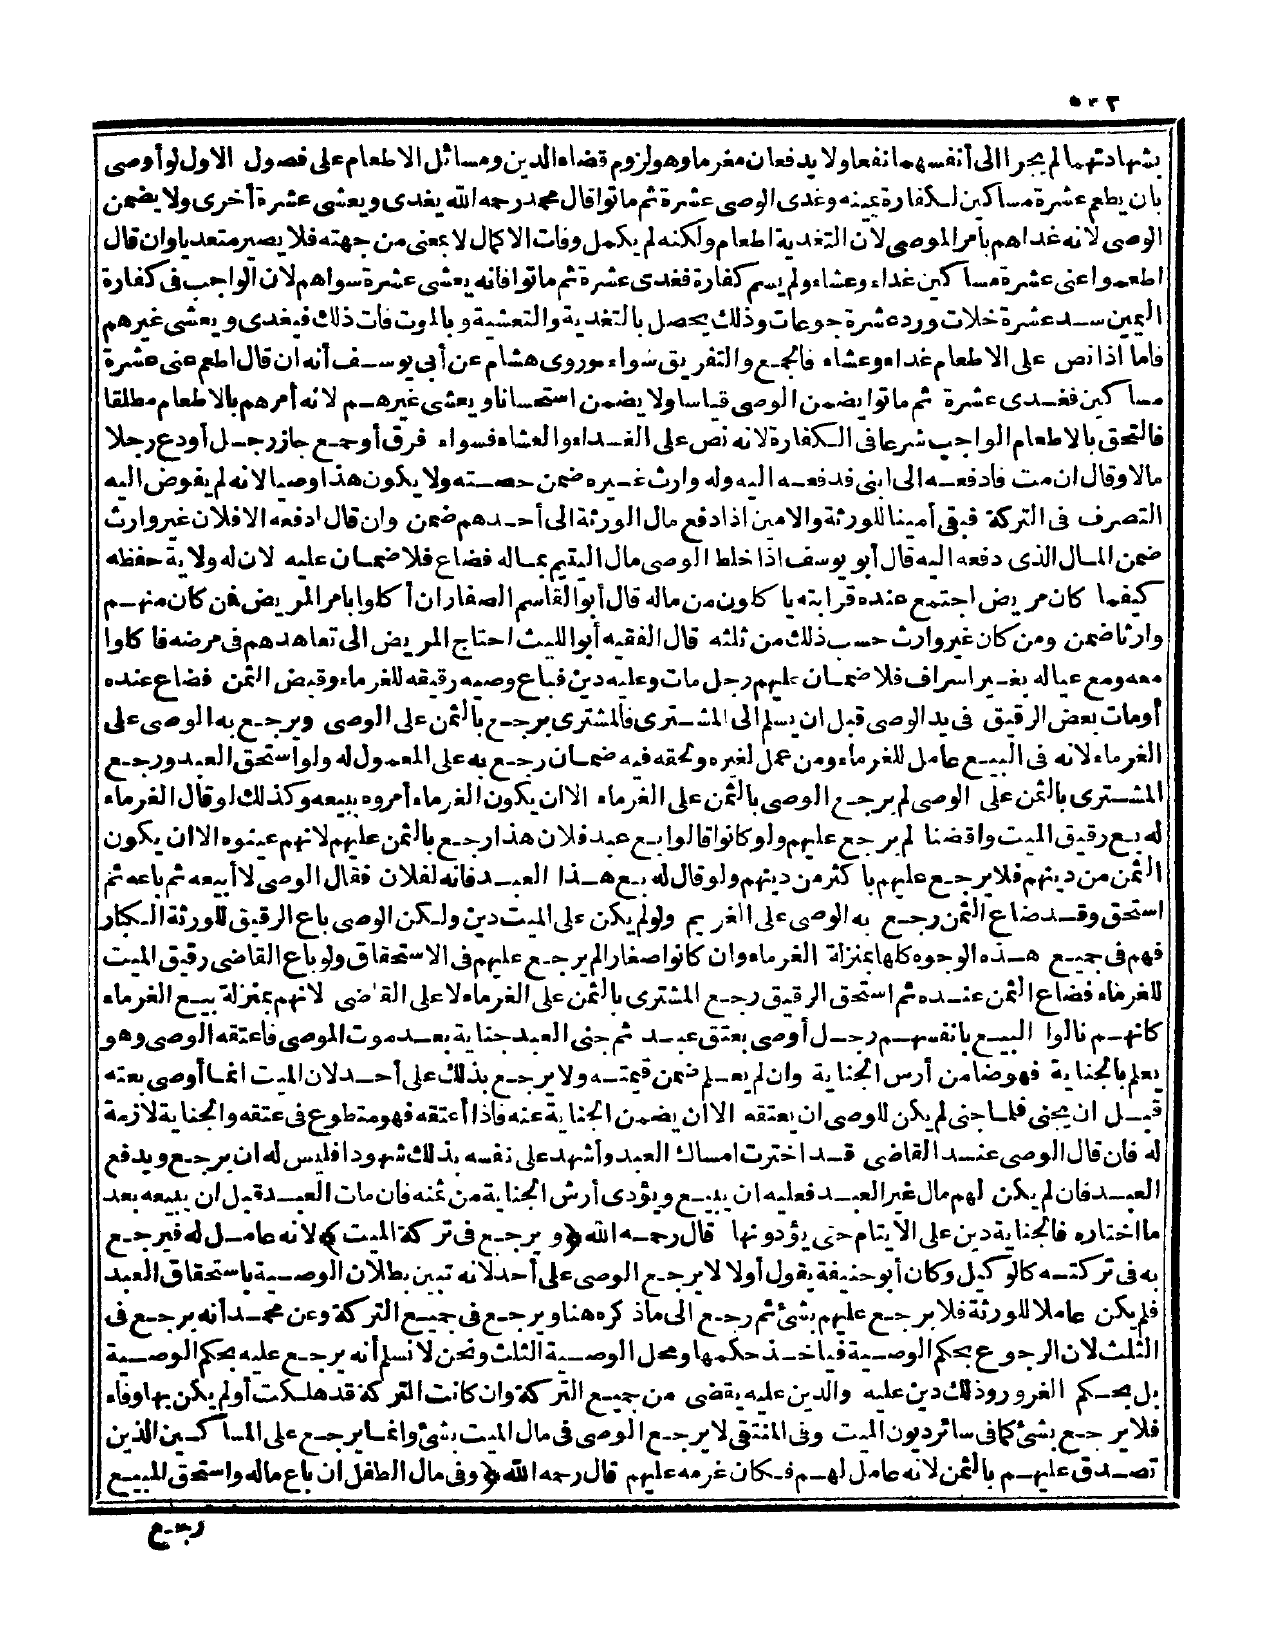 بشهادتهما لم يجرا الى أنفسهما نفعا ولا يدفعان مغرما وهو لزوم قضاء الدين ومسائل الاطعام على فصول الاول لو أوصى
بان يطعم عشرة مساكين لكفارة يمينه وغدى الوصى عشرة ثم ماتوا قال محمد رحمه الله يغدى ويعشى عشرة أخرى ولا يضمن
الوصى لانه غداهم بامر الموصى لان التغدية اطعام ولكنه لم يكمل وفات الاكمال لا بمعنى من جهته فلا يصير متعديا وان قال
اطعموا عنى عشرة مساكين غداء وعشاء ولم يسم كفارة فغدى عشرة ثم ماتوا فانه يعشى عشرة سواهم لان الواجب فى كفارة
اليمين سد عشرة خلات ورد عشرة جوعات وذلك يحصل بالتغدية والتعشية وبالموت فات ذلك فيغدى ويعشى غيرهم
فاما اذا نص على الاطعام غداء وعشاء فالجمع والتفريق سواء وروى هشام عن أبى يوسف أنه ان قال اطعم عنى عشرة
مساكين فغدى عشرة ثم ماتوا يضمن الوصى قياسا ولا يضمن استحسانا ويعشى غيرهم لانه أمرهم بالاطعام مطلقا
فالتحق بالاطعام الواجب شرعا فى الكفارة لانه نص على الغداء والعشاء فسواء فرق أو جمع جاز رجل أودع رجلا
مالا وقال ان مت فادفعه الى ابنى فدفعه اليه وله وارث غيره ضمن حصته ولا يكون هذا وصيا لانه لم يفوض اليه
التصرف فى التركة فبقى أمينا للورثة والامين اذا دفع مال الورثة الى أحدهم ضمن وان قال ادفعه الا فلان غير وارث
ضمن المال الذى دفعه اليه قال أبو يوسف اذا خلط الوصى مال اليتيم بماله فضاع فلا ضمان عليه لان له ولاية حفظه
كيفما كان مريض اجتمع عنده قرابته يا كلون من ماله قال أبو القاسم الصفار ان أكلوا بامر المريض فمن كان منهم
وارثا ضمن ومن كان غير وارث حسب ذلك من ثلثه قال الفقيه أبو الليث احتاج المريض الى تعاهدهم فى مرضه فا كلوا
معه ومع عياله بغير اسراف فلا ضمان عليهم رجل مات وعليه دين فباع وصيه رقيقه للغرماء وقبض الثمن فضاع عنده
أو مات بعض الرقيق فى يد الوصى قبل ان يسلم الى المشترى فالمشترى يرجع بالثمن على الوصى ويرجع به الوصى على
الغرماء لانه فى البيع عامل للغرماء ومن عمل لغيره ولحقه فيه ضمان رجع به على المعمول له ولو استحق العبد ورجع
المشترى بالثمن على الوصى لم يرجع الوصى بالثمن على الغرماء الا ان يكون الغرماء أمروه ببيعه وكذلك لو قال الغرماء
له بع رقيق الميت واقضنا لم يرجع عليهم ولو كانوا قالوا بع عبد فلان هذا رجع بالثمن عليهم لانهم عينوه الا ان يكون
الثمن من دينهم فلا يرجع عليهم باكثر من دينهم ولو قال له بع هذا العبد فانه لفلان فقال الوصى لا أبيعه ثم باعه ثم
استحق وقد ضاع الثمن رجع به الوصى على الغريم ولو لم يكن على الميت دين ولكن الوصى باع الرقيق للورثة الكبار
فهم فى جميع هذه الوجوه كلها بمنزلة الغرماء وان كانوا صغارا لم يرجع عليهم فى الاستحقاق ولو باع القاضى رقيق الميت
للغرماء فضاع الثمن عنده ثم استحق الرقيق رجع المشترى بالثمن على الغرماء لا على القاضى لانهم بمنزلة بيع الغرماء
كانهم نالوا البيع بانفسهم رجل أوصى بعتق عبد ثم جنى العبد جناية بعد موت الموصى فاعتقه الوصى وهو
يعلم بالجناية فهو ضامن أرس الجناية وان لم يعلم ضمن قيمته ولا يرجع بذلك على أحد لان الميت انما أوصى بعتقه
قبل ان يجنى فلما جنى لم يكن للوصى ان يعتقه الا ان يضمن الجناية عنه فاذا أعتقه فهو متطوع فى عتقه والجناية لازمة
له فان قال الوصى عند القاضى قد اخترت امساك العبد وأشهد على نفسه بذلك شهودا فليس له ان يرجع ويدفع
العبد فان لم يكن لهم مال غير العبد فعليه ان يبيع ويؤدى أرش الجناية من ثمنه فان مات العبد قبل ان يبيعه بعد
ما اختاره فالجناية دين على الايتام حتى يؤدونها قال رحمه الله ﴿ويرجع فى تركة الميت﴾ لانه عامل له فيرجع
به فى تركته كالوكيل وكان أبو حنيفة يقول أولا لا يرجع الوصى على أحد لانه تبين بطلان الوصية باستحقاق العبد
فلم يكن عاملا للورثة فلا يرجع عليهم بشئ ثم رجع الى ماذ كره هنا ويرجع فى جميع التركة وعن محمد أنه يرجع فى
الثلث لان الرجوع بحكم الوصية فياخذ حكمها ومحل الوصية الثلث ونحن لا نسلم أنه يرجع عليه بحكم الوصية
بل بحكم الغرور وذلك دين عليه والدين عليه يقضى من جميع التركة وان كانت التركة قد هلكت أو لم يكن بها وفاء
فلا يرجع بشئ كما فى سائر ديون الميت وفى المنتقى لا يرجع الوصى فى مال الميت بشئ وانما يرجع على المساكين الذين
تصدق عليهم بالثمن لانه عامل لهم فكان غرمه عليهم قال رحمه الله ﴿وفى مال الطفل ان باع ماله واستحق المبيع
رجع